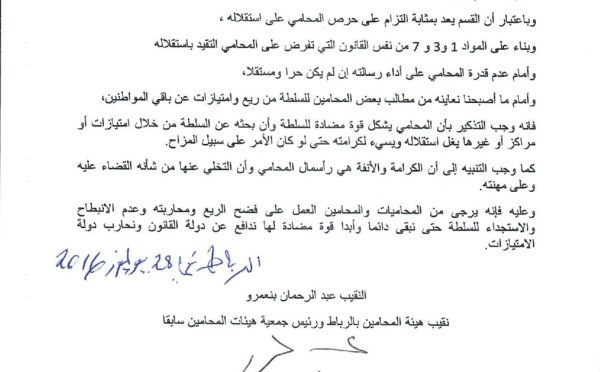 وباعتبار أن القسم يعد بمثابة التزام على حرص المحامي على استقلاله ،
وبناء على المواد 1 و3 و 7 من نفس القانون التي تفرض على المحامي التقيد باستقلاله
وأمام عدم قدرة المحامي على أداء رسالته إن لم يكن حرا ومستقلا،
وأمام ما أصبحنا نعاينه من مطالب بعض المحامين للسلطة من ريع وامتيازات عن باقي المواطنين،
فانه وجب التذكير بأن المحامي يشكل قوة مضادة للسلطة وأن بحثه عن السلطة من خلال امتيازات أو
مراكز أو غيرها يغل استقلاله ويسيء لكرامته حتى لو كان الأمر على سبيل المزاح.
كما وجب التنبيه إلى أن الكرامة والأنفة هي رأسمال المحامي وأن التخلي عنها من شأنه القضاء عليه
وعلى مهنته.
وعليه فإنه يرجى من المحاميات والمحامين العمل على فضح الريع ومحاربته وعدم الانبطاح
والاستجداء للسلطة حتى نبقى دائما وأبدا قوة مضادة لها ندافع عن دولة القانون ونحارب دولة
الامتيازات.
الرباط في 28 يوليوز 2016
النقيب عبد الرحمان بنعمرو
نقيب هيئة المحامين بالرباط ورئيس جمعية هيئات المحامين سابقا